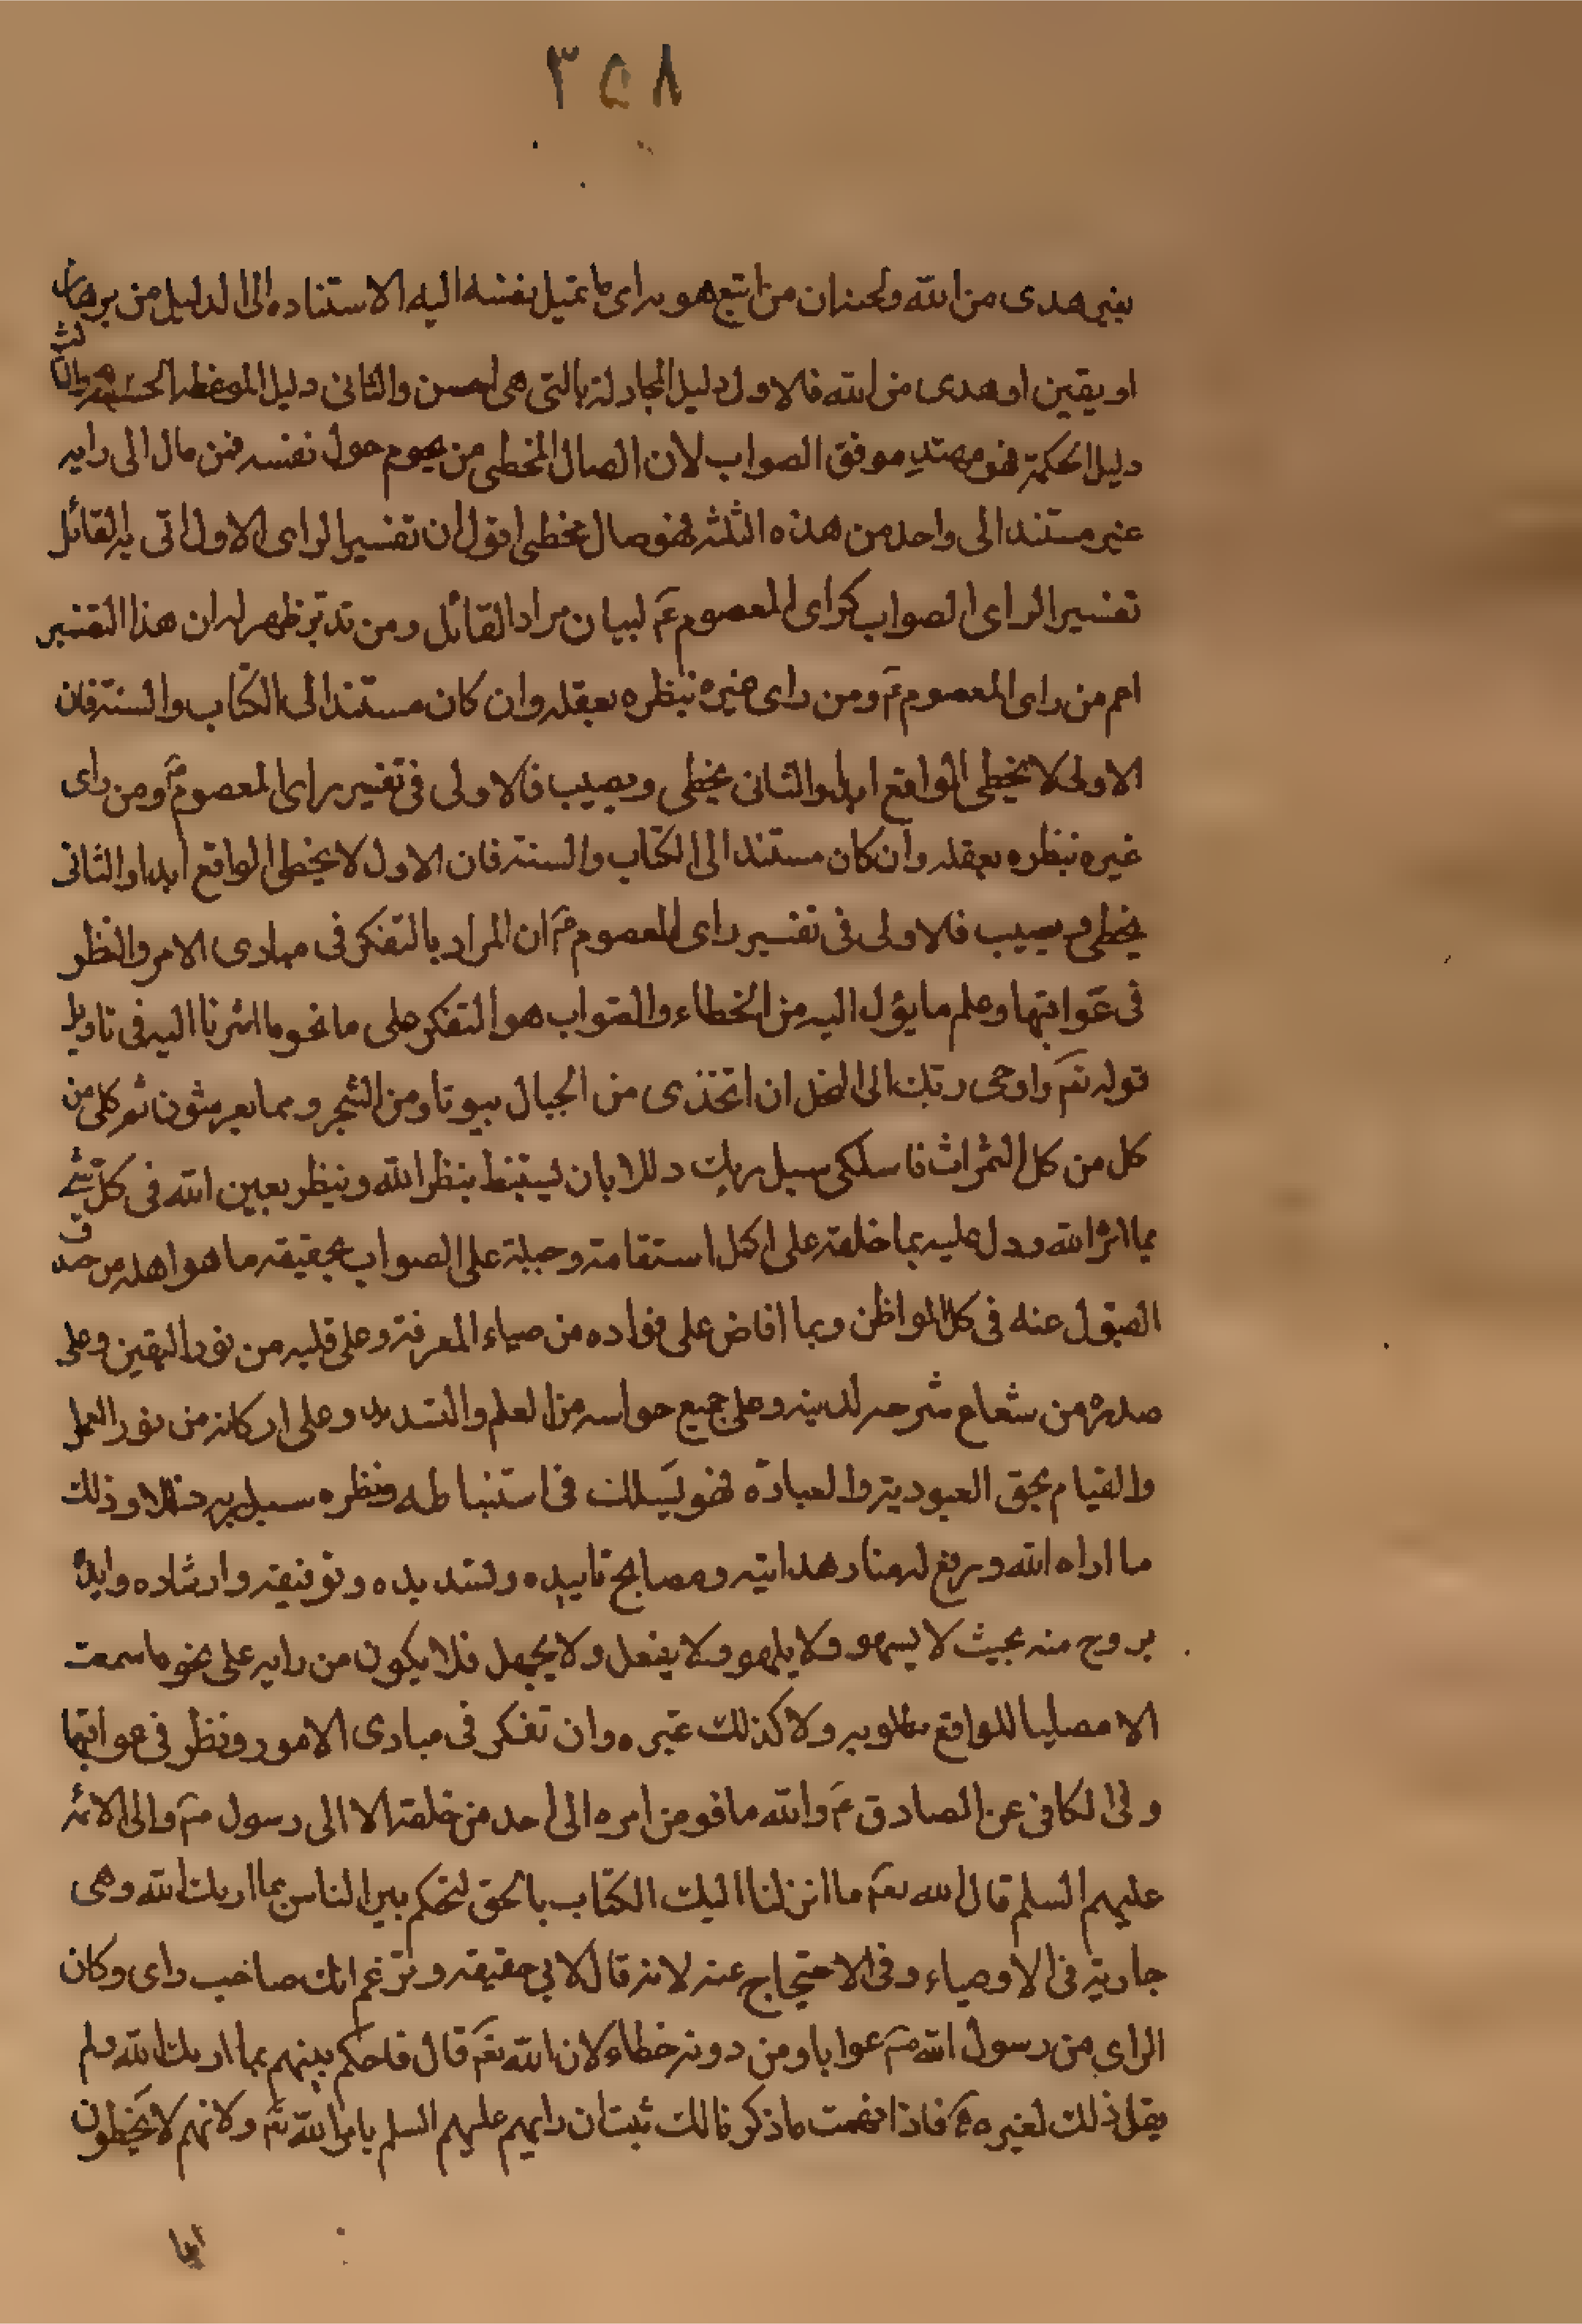 ٣٥٨
بغير هدى من الله ولحن ان من اتبع هو براى ما تميل نفسه اليه الاستناده الى الدليل من برهان
او يقين او هدى من الله فالاول دليل المجادلة بالتى هى احسن والثانى دليل الموعظة الحسنة والثالث
دليل الحكمة فهو مهتد موفق الصواب لان الضال المخطى من يحوم حول نفسه فمن مال الى رايه
غير مستند الى واحد من هذه الثلثة فهو ضال مخطى اقول ان تفسير الراى الاول اتى به القائل
تفسير الراى الصواب كراى المعصوم ع لبيان مراد القائل ومن تدبر ظهر له ان هذا التفسير
اعم من راى المعصوم ع ومن راى غيره بنظره بعقله وان كان مستندا الى الكتاب والسنة فان
الاول لا يخطى الواقع ابدا والثانى يخطى ويصيب فالاولى فى تفسير راى المعصوم ع ومن راى
غيره بنظره بعقله وان كان مستندا الى الكتاب والسنة فان الاول لا يخطى الواقع ابدا والثانى
يخطى ويصيب فالاولى فى تفسير راى المعصوم ع ان المراد بالتفكر فى مبادى الامر والنظر
فى عواقبها وعلم ما يؤل اليه من الخطاء والصواب هو التفكر على ما نحو ما اشرنا اليه فى تاويل
قوله تعم واوحى ربك الى النحل ان اتخذى من الجبال بيوتا ومن الشجر ومما يعرشون ثم كلى من
كل من كل الثمرات فاسلكى سبل ربك ذللا بان يستنبط بنظر الله وينظر بعين الله فى كل شئ
بما اثر الله ودل عليه بما خلقه على اكمل استقامة وجبلة على الصواب بحقيقة ما هو اهله من صدق
القبول عنه فى كل المواطن وبما افاض على فؤاده من ضياء المعرفة وعلى قلبه من نور اليقين وعلى
صدره من شعاع شرحه لدينه وعلى جميع حواسه من العلم والتسديد وعلى اركانه من نور العمل
والقيام بحق العبودية والعبادة فهو يسلك فى استنباطه ونظره سبل ربه ذللا وذلك
ما اراه الله ورفع له منار هدايته ومصابح تاييده وتسديده وتوفيقه وارشاده وايده
بروح منه بحيث لا يسهو ولا يلهو ولا يغفل ولا يجهل فلا يكون من رايه على نحو ما سمعت
الا مصيبا للواقع مطلوبه ولا كذلك غيره وان تفكر فى مبادى الامور ونظر فى عواقبها
وفى الكافى عن الصادق ع والله ما فوض امره الى احد من خلقه الا الى رسول ص والى الائمة
عليهم السلم قال الله تعم ما انزلنا اليك الكتاب بالحق لتحكم بين الناس بما اريك الله وهى
جارية فى الاوصياء وفى الاحتجاج عنه لانه قال لابى حنيفة وتزعم انك صاحب راى وكان
الراى من رسول الله ص صوابا ومن دونه خطاء لان الله تعم قال فاحكم بينهم بما اريك الله ولم
يقل ذلك لغيره ع فاذا فهمت ما ذكرنا لك ثبت ان رايهم عليهم السلم بامر الله تعم ولانهم لا يخطون
ابدا